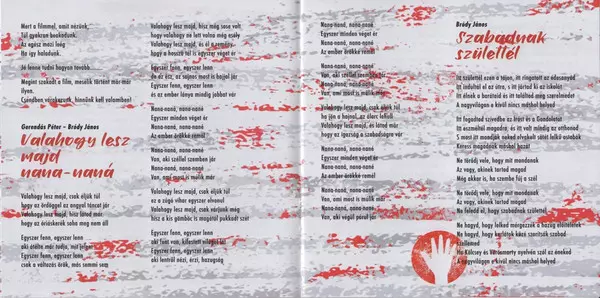 Mert a filmmel, amit nézünk,
Túl gyakran bookodunk.
Az egész mozi leég
Ha így haladunk.
Jó lenne tudni hogyan tovább
Megint szakadt a film, mesélik történt már-már
ilyen.
Csöndben várakozunk, hinnünk kell valamiben!
Gerendás Péter – Bródy János
Valahogy lesz
majd
nana-naná
Valahogy lesz majd, csak éljük túl
hogy az ördöggel az angyal táncot jár
Valahogy lesz majd, hisz láttad már
hogy az óriáskerék soha meg nem áll
Egyszer fenn, egyszer lenn
aki átélte már tudja, mit jelent
Egyszer fenn, egyszer lenn
csak a változás örök, más semmi sem
Valahogy lesz majd, hisz még sose volt
hogy valahogy ne lett volna még esély
Valahogy lesz majd, és él a remény
hogy a hosszú tél is egyszer véget ér
Egyszer fenn, egyszer lenn
de az ész, az sajnos most is bajjal jár
Egyszer fenn, egyszer lenn
és az ember lénye mindig jobbat vár
Nana-naná, nana-naná
Egyszer minden véget ér
Nana-naná, nana-naná
Az ember örökké remél
Nana-naná, nana-naná
Van, aki széllel szemben jár
Nana-naná, nana-naná
Van, ami most is múlik már
Valahogy lesz majd, csak éljük túl
ez a zúgó vihar egyszer elvonul
Valahogy lesz majd, csak várjunk még
hisz a kis gömböc is magától pukkadt szét
Egyszer fenn, egyszer lenn
aki fent van, kifesteti világát
Egyszer fenn, egyszer lenn
aki lentről nézi, érzi, hazugság
Nana-naná, nana-naná
Egyszer minden véget ér
Nana-naná, nana-naná
Az ember örökké remél
Nana-naná, nana-naná
Van, aki széllel szemben jár
Nana-naná, nana-naná
Van, ami most is múlik már
Valahogy lesz majd, csak éljük túl
ha jön a hajnal, az álarc lehull
Valahogy lesz majd, és láttad már
hogy az igazság a szabadságra vár
Nana-naná, nana-naná
Egyszer minden véget ér
Nana-naná, nana-naná
Az ember örökké remél
Nana-naná, nana-naná
Van, ami most is múlik már
Nana-naná, nana-naná
Van, aki végül pórul jár
Bródy János
Szabadnak
születtél
Itt születtél ezen a tájon, itt ringatott az édesanyád
Itt indultál el az útra, s itt jártad ki az iskolát
Itt éltek a barátaid és itt találtad meg szerelmedet
A nagyvilágon e kívül nincs máshol helyed
Itt fogadtad szívedbe az Írást és a Gondolatot
Itt eszméltél magadra, és itt volt mindig az otthonod
S most itt mondják neked elvakult sötét lelkű ostobák
Keress magadnak máshol hazát
Ne törődj vele, hogy mit mondanak
Az vagy, akinek tartod magad
Még akkor is, ha szembe fúj a szél
Ne törődj vele, hogy mit mondanak
Az vagy, akinek tartod magad
Ne feledd el, hogy szabadnak születtél
Ne hagyd, hogy lelked mérgezzék a hazug előítéletek
Ne hagyd, hogy korlátok közé szorítsák szabad
szellemed
Ha Kölcsey és Vörösmarty nyelvén szól az éneked
A nagyvilágon e kívül nincs máshol helyed